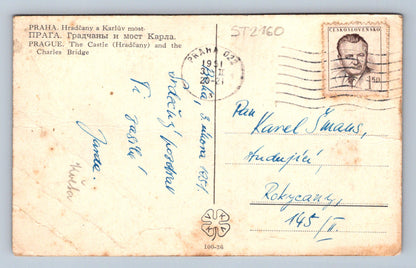 PRAHA. Hradčany a Karlův most.
ПРАГА. Градчаны и мост Карла.
PRAGUE. The Castle (Hradčany) and the
Charles Bridge
ST2160
PRAHA 022
1951
ČESKOSLOVENSKO
Praha, 3. února 1951.
Srdečný pozdrav
Ti zasílá
Jarda
Pan
Karel Šmaus,
studující,
Rokycany,
145/II.
100-26